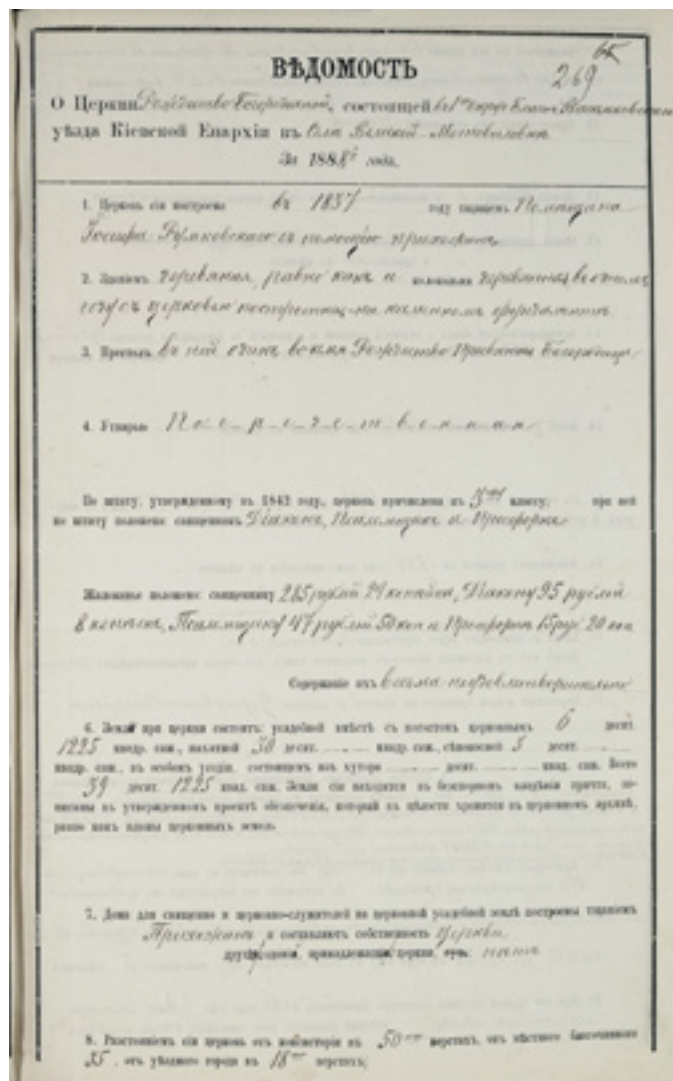 65
269
ВѢДОМОСТЬ
О Церкви Рождество-Богородичной, состоящей въ 1мъ округѣ Благоч. Васильковскаго
уѣзда Кіевской Епархіи въ Селѣ Великой Мотовиловкѣ
За 1888й годъ.
1. Церковь сія построена въ 1857 году тщаніемъ Помѣщика
Іосифа Румковскаго съ помощію прихожанъ
2. Зданіемъ деревянная, равно какъ и колокольня деревянная въ
съ церковью на каменномъ фундаментѣ
3. Престолъ въ ней одинъ во имя Рождества Пресвятыя Богородицы
4. Утварью Посредственная
По штату, утвержденному въ 1842 году, церковь причислена къ классу; при ней
по штату положено: священникъ, Діаконъ, Псаломщикъ и Просфорня
Жалованье положено: священнику 285 рублей 29 копѣйки, Діакону 95 рублей
8 копѣекъ, Псаломщику 47 рублей 50 коп и Просфорнѣ 15 руб 20 коп
Содержаніе ихъ весьма неудовлетворительно
6. Земли при церкви состоитъ: усадебной вмѣстѣ съ погостомъ церковнымъ 6 десят.
1225 квадр. саж., пахатной 30 десят. квадр. саж., сѣнокосной 3 десят.
квадр. саж., въ особомъ угодіи, состоящемъ изъ хутора десят. квад. саж. Всего
39 десят. 1225 квад. саж. Земли сіи находятся въ безспорномъ владѣніи причта, за-
писаны въ утвержденномъ проектѣ обезпеченія, который въ цѣлости хранится въ церковномъ архивѣ,
равно какъ планы церковныхъ земель.
7. Дома для священно и церковно-служителей на церковной усадебной землѣ построены тщаніемъ
Прихожанъ и составляютъ собственность Церкви
других зданій, принадлежащихъ церкви, нѣтъ
8. Разстояніемъ сія церковь отъ консисторіи въ 50 верстахъ, отъ мѣстнаго благочиннаго
35, отъ уѣзднаго города въ 18 верстахъ;